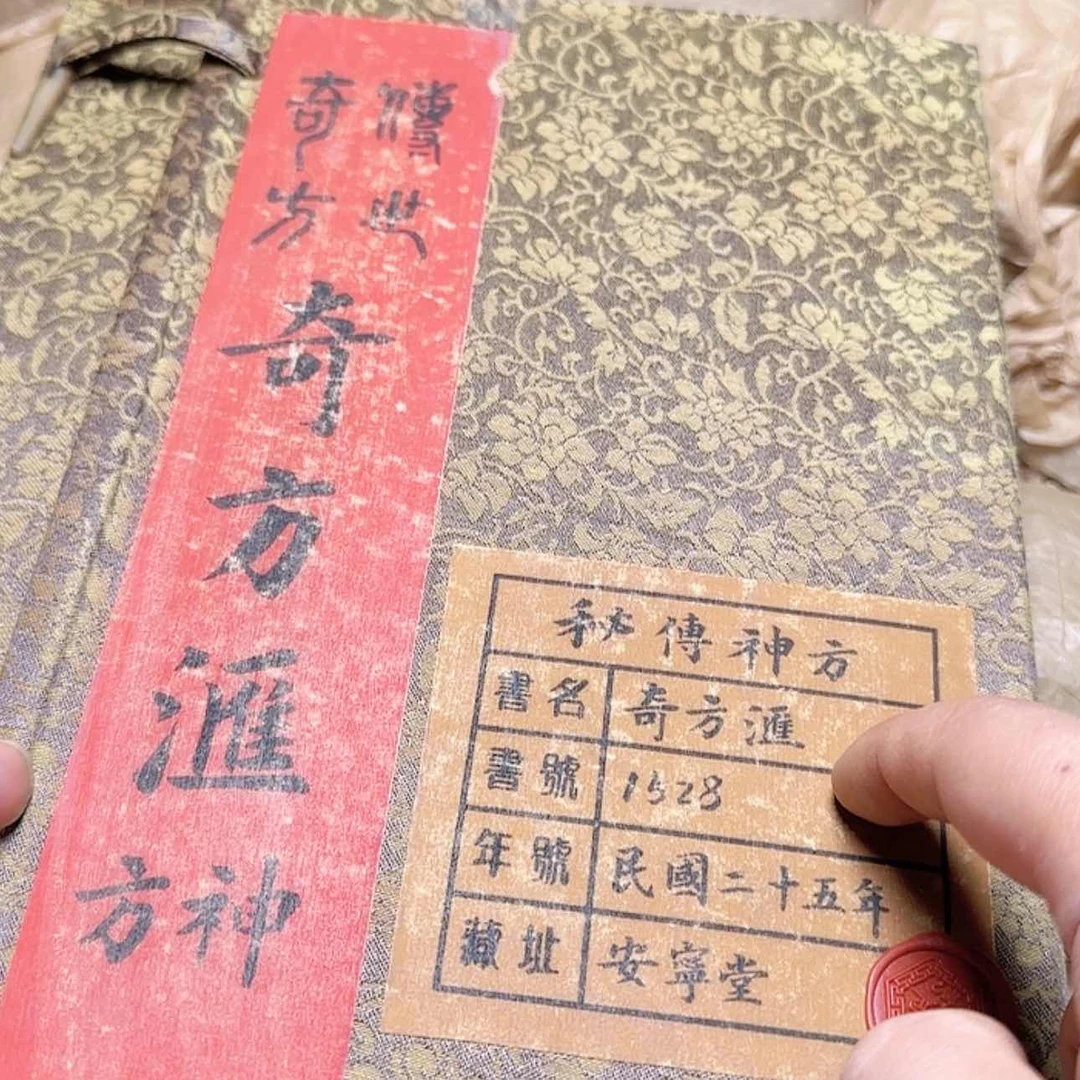 傳世
奇方
奇方滙
神方
秘傳神方
書名 奇方滙
書號 1528
年號 民國二十五年
藏址 安寧堂